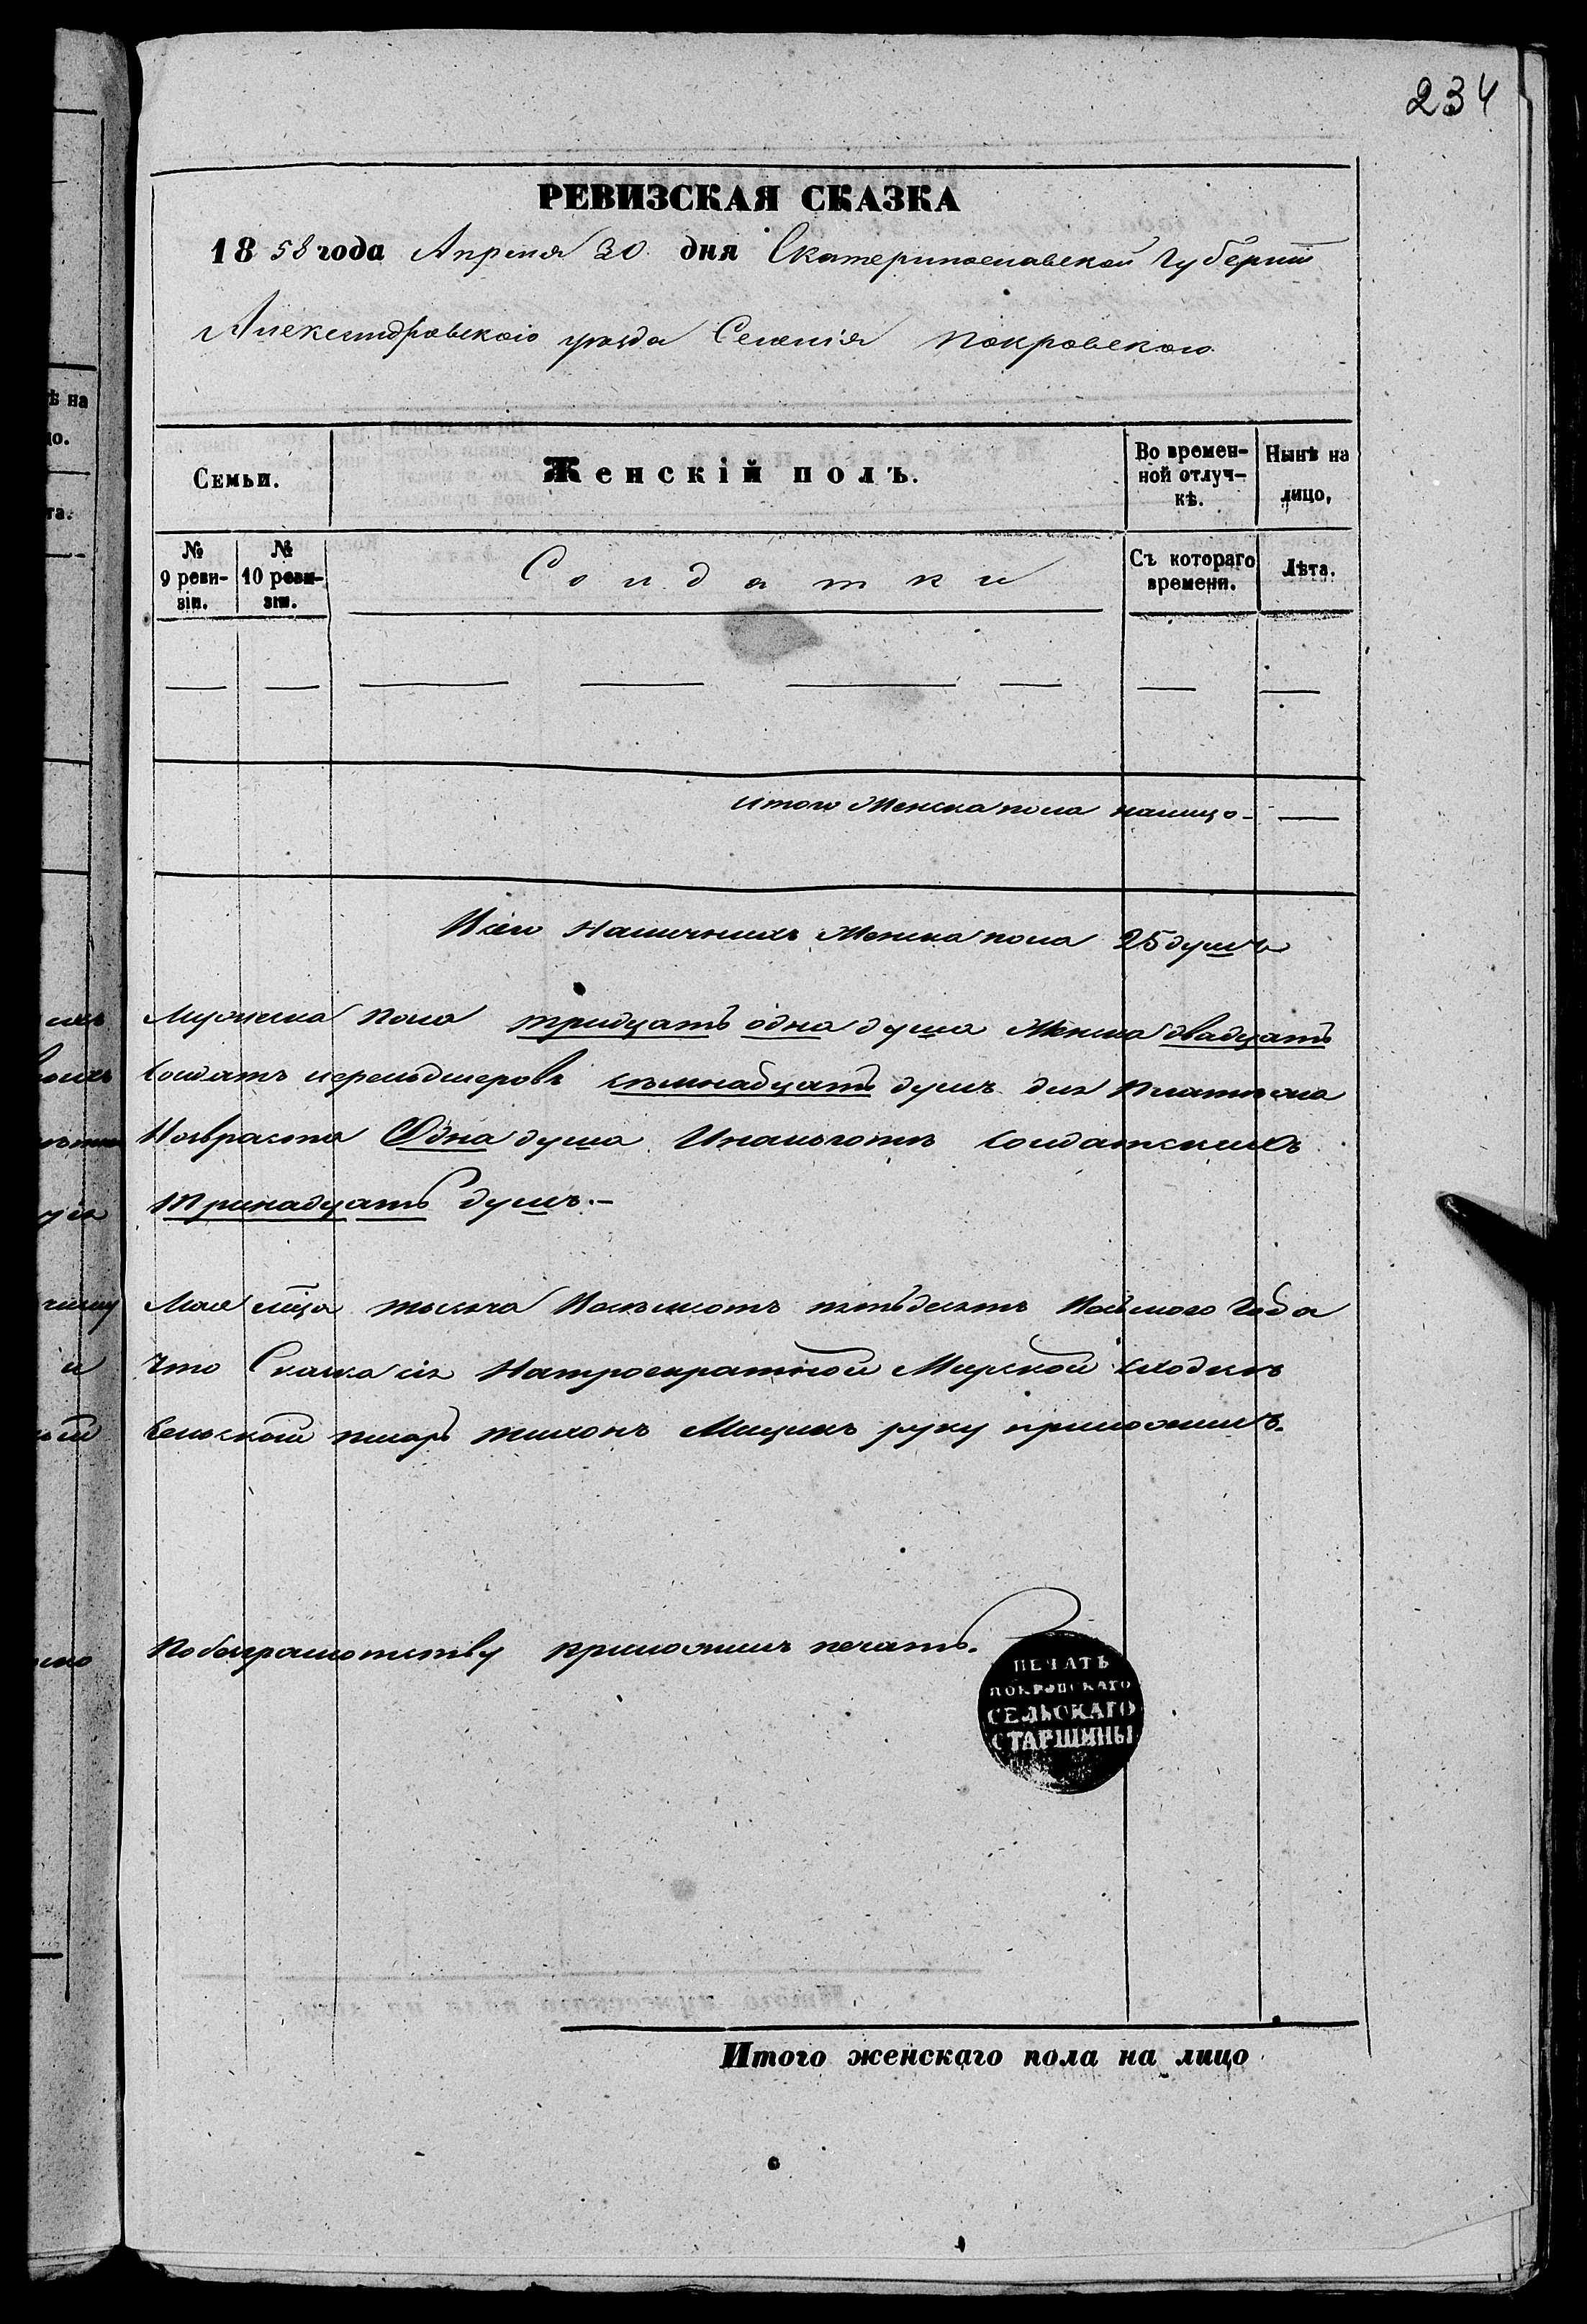 234
РЕВИЗСКАЯ СКАЗКА
1858 года Апреля 30 дня Екатеринославской Губерніи
Александровского уезда Селенія Покровского
Семьи.
Женскій полъ.
Во времен-
ной отлуч-
кѣ.
Нынѣ на
лицо.
№
9 реви-
зіи.
№
10 реви-
зіи.
Солдатки
Съ котораго
времени.
Лѣта.
итого Женска пола налицо —
Всего Наличныхъ Женска пола 25 душъ
Мужеска пола тридцать одна душа Женска двадцать
Солдатъ душъ
Возраста Одна душа Солдатскихъ
тринадцать душъ.—
Мая мца тысяча Восемсотъ пятьдесятъ Восьмого Года
Что Сказка сія Мирской сходки
Сельскій писарь тихонъ руку приложилъ.
По безграмотству приложилъ печать.
ПЕЧАТЬ
ПОКРОВСКАГО
СЕЛЬСКАГО
СТАРШИНЫ
Итого женскаго пола на лицо